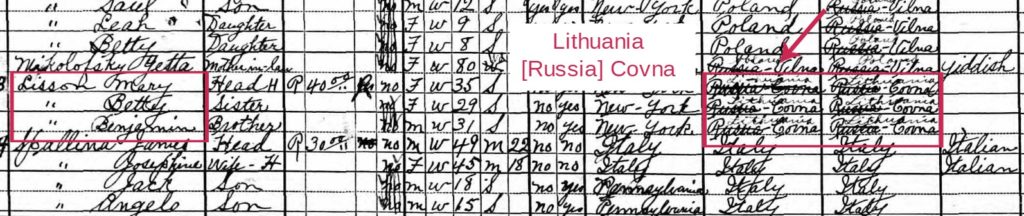 " Saul Son no M W 12 S yes yes New-York Poland Russia-Vilna
" Leah Daughter no F W 9 S Poland Russia-Vilna
" Betty Daughter no F W 8 S Poland Russia-Vilna
Lithuania
[Russia] Covna
Yetta Motherinlaw no F W 80 Russia-Vilna Russia-Vilna Yiddish
Lisson Mary Head H R 40 no F W 35 S Russia-Covna Russia-Covna
" Betty Sister no F W 29 S no yes New-York Lithuania Russia-Covna Lithuania Russia-Covna
" Benjamin Brother no M W 31 S no yes New-York Lithuania Russia-Covna Lithuania Russia-Covna
Spallina James Head R 30 no M W 49 M 22 no no Italy Italy Italy Italian
" Josephine Wife-H no F W 45 M 18 no no Italy Italy Italy Italian
" Jack Son no M W 18 S no yes Pennsylvania Italy Italy
" Angelo Son no M W 15 S no yes Pennsylvania Italy Italy